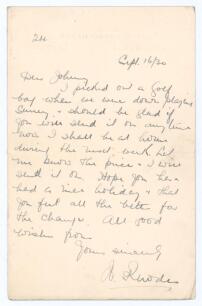 24
Sept. 16/20
Dear Johnny
I picked out a Golf
bag when we were down playing
Surrey & should be glad if
you will send it on any time
now I shall be at home
during the next week let
me know the price & I will
send it on Hope you have
had a nice holiday & that
you feel all the better for
the change. All good
wishes from
Yours sincerely
W. Rhodes